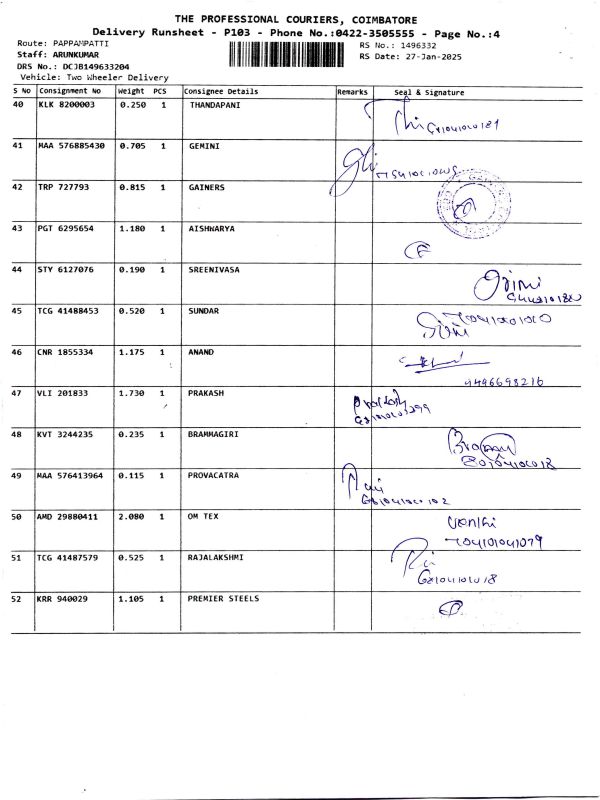 THE PROFESSIONAL COURIERS, COIMBATORE
Delivery Runsheet - P103 - Phone No.:0422-3505555 - Page No.:4
Route: PAPPAMPATTI RS No.: 1496332
Staff: ARUNKUMAR RS Date: 27-Jan-2025
DRS No.: DCJB149633204
Vehicle: Two Wheeler Delivery
S No Consignment No Weight PCS Consignee Details Remarks Seal & Signature
40 KLK 8200003 0.250 1 THANDAPANI
41 MAA 576885430 0.705 1 GEMINI
42 TRP 727793 0.815 1 GAINERS
43 PGT 6295654 1.180 1 AISHWARYA
44 STY 6127076 0.190 1 SREENIVASA
45 TCG 41488453 0.520 1 SUNDAR
46 CNR 1855334 1.175 1 ANAND
9496698216
47 VLI 201833 1.730 1 PRAKASH
Prakash
48 KVT 3244235 0.235 1 BRAMMAGIRI
49 MAA 576413964 0.115 1 PROVACATRA
50 AMD 29880411 2.080 1 OM TEX
51 TCG 41487579 0.525 1 RAJALAKSHMI
52 KRR 940029 1.105 1 PREMIER STEELS